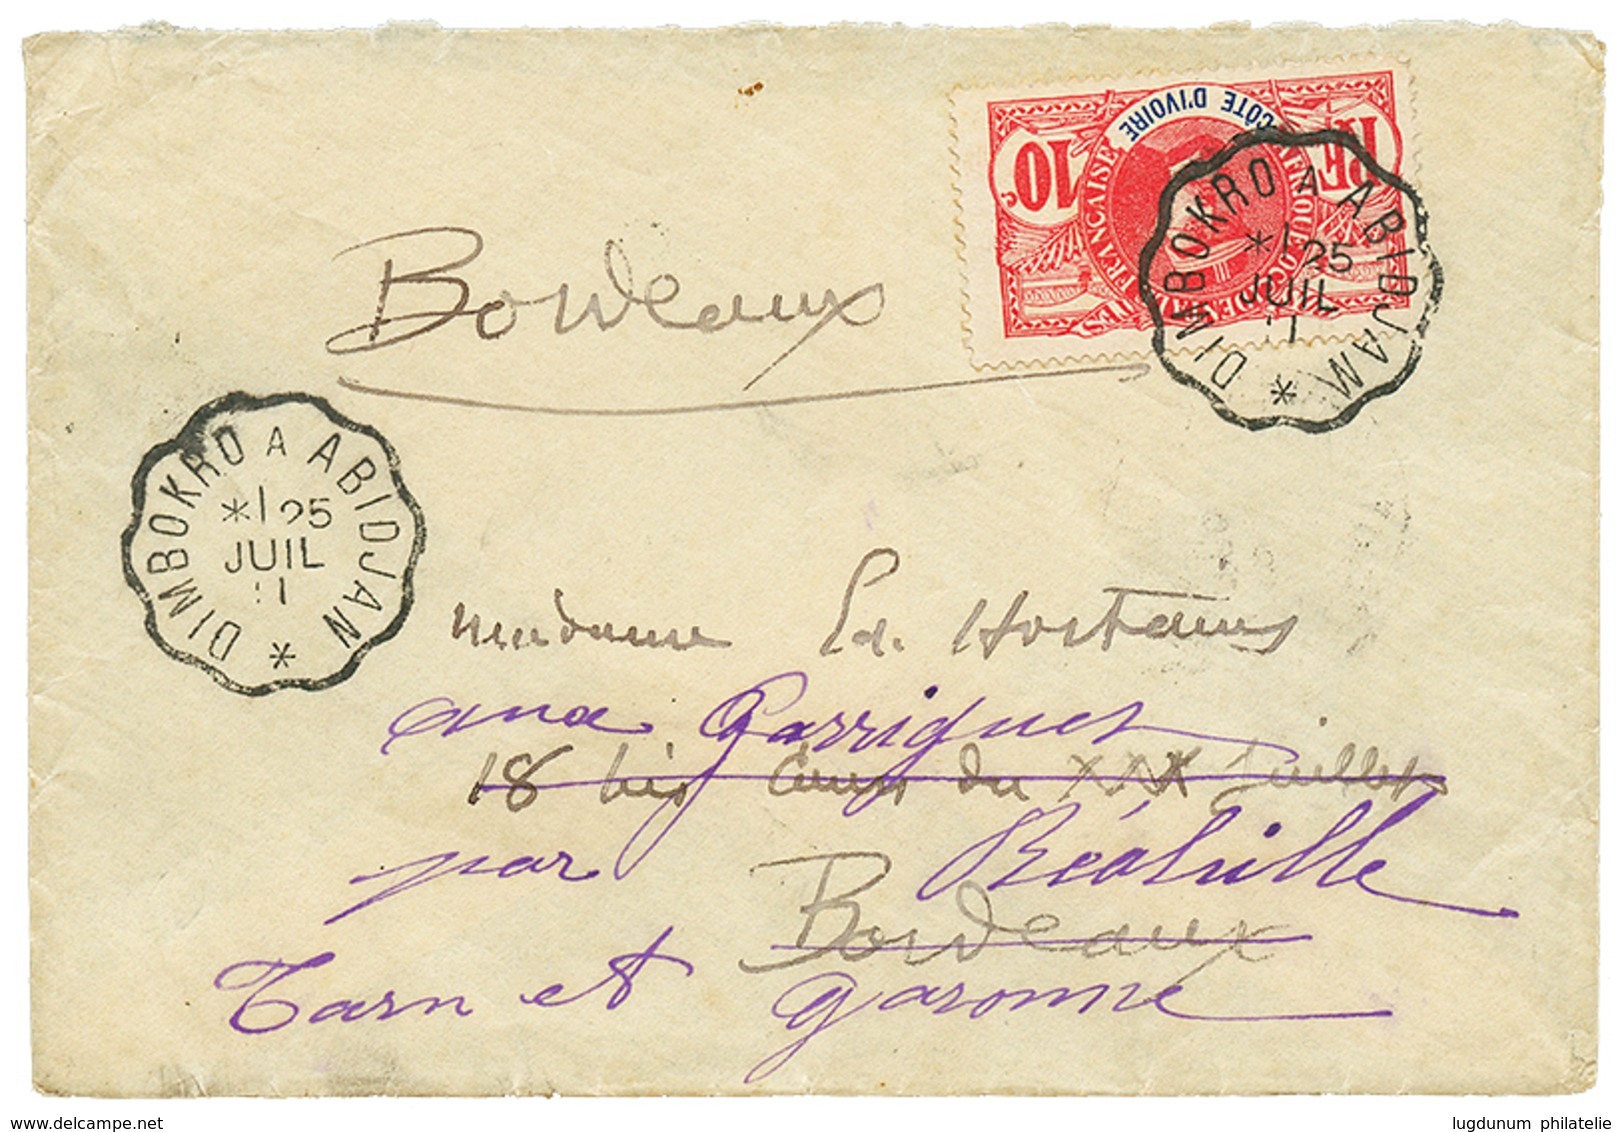 CÔTE D'IVOIRE
AFRIQUE OCCIDENTALE FRANÇAISE
10c
RF
DIMBOKRO A ABIDJAN
* 25
JUIL
11
Bordeaux
DIMBOKRO A ABIDJAN
* 25
JUIL
11
Madame Ed.
aux Garrigues
18 bis Cours du XXX Juillet
par Réalville
Bordeaux
Tarn et Garonne
lugdunum philatelie